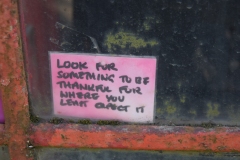 LOOK FUR
SOMETHING TO BE
THANKFUL FUR
WHERE YOU
LEAST EXPECT IT